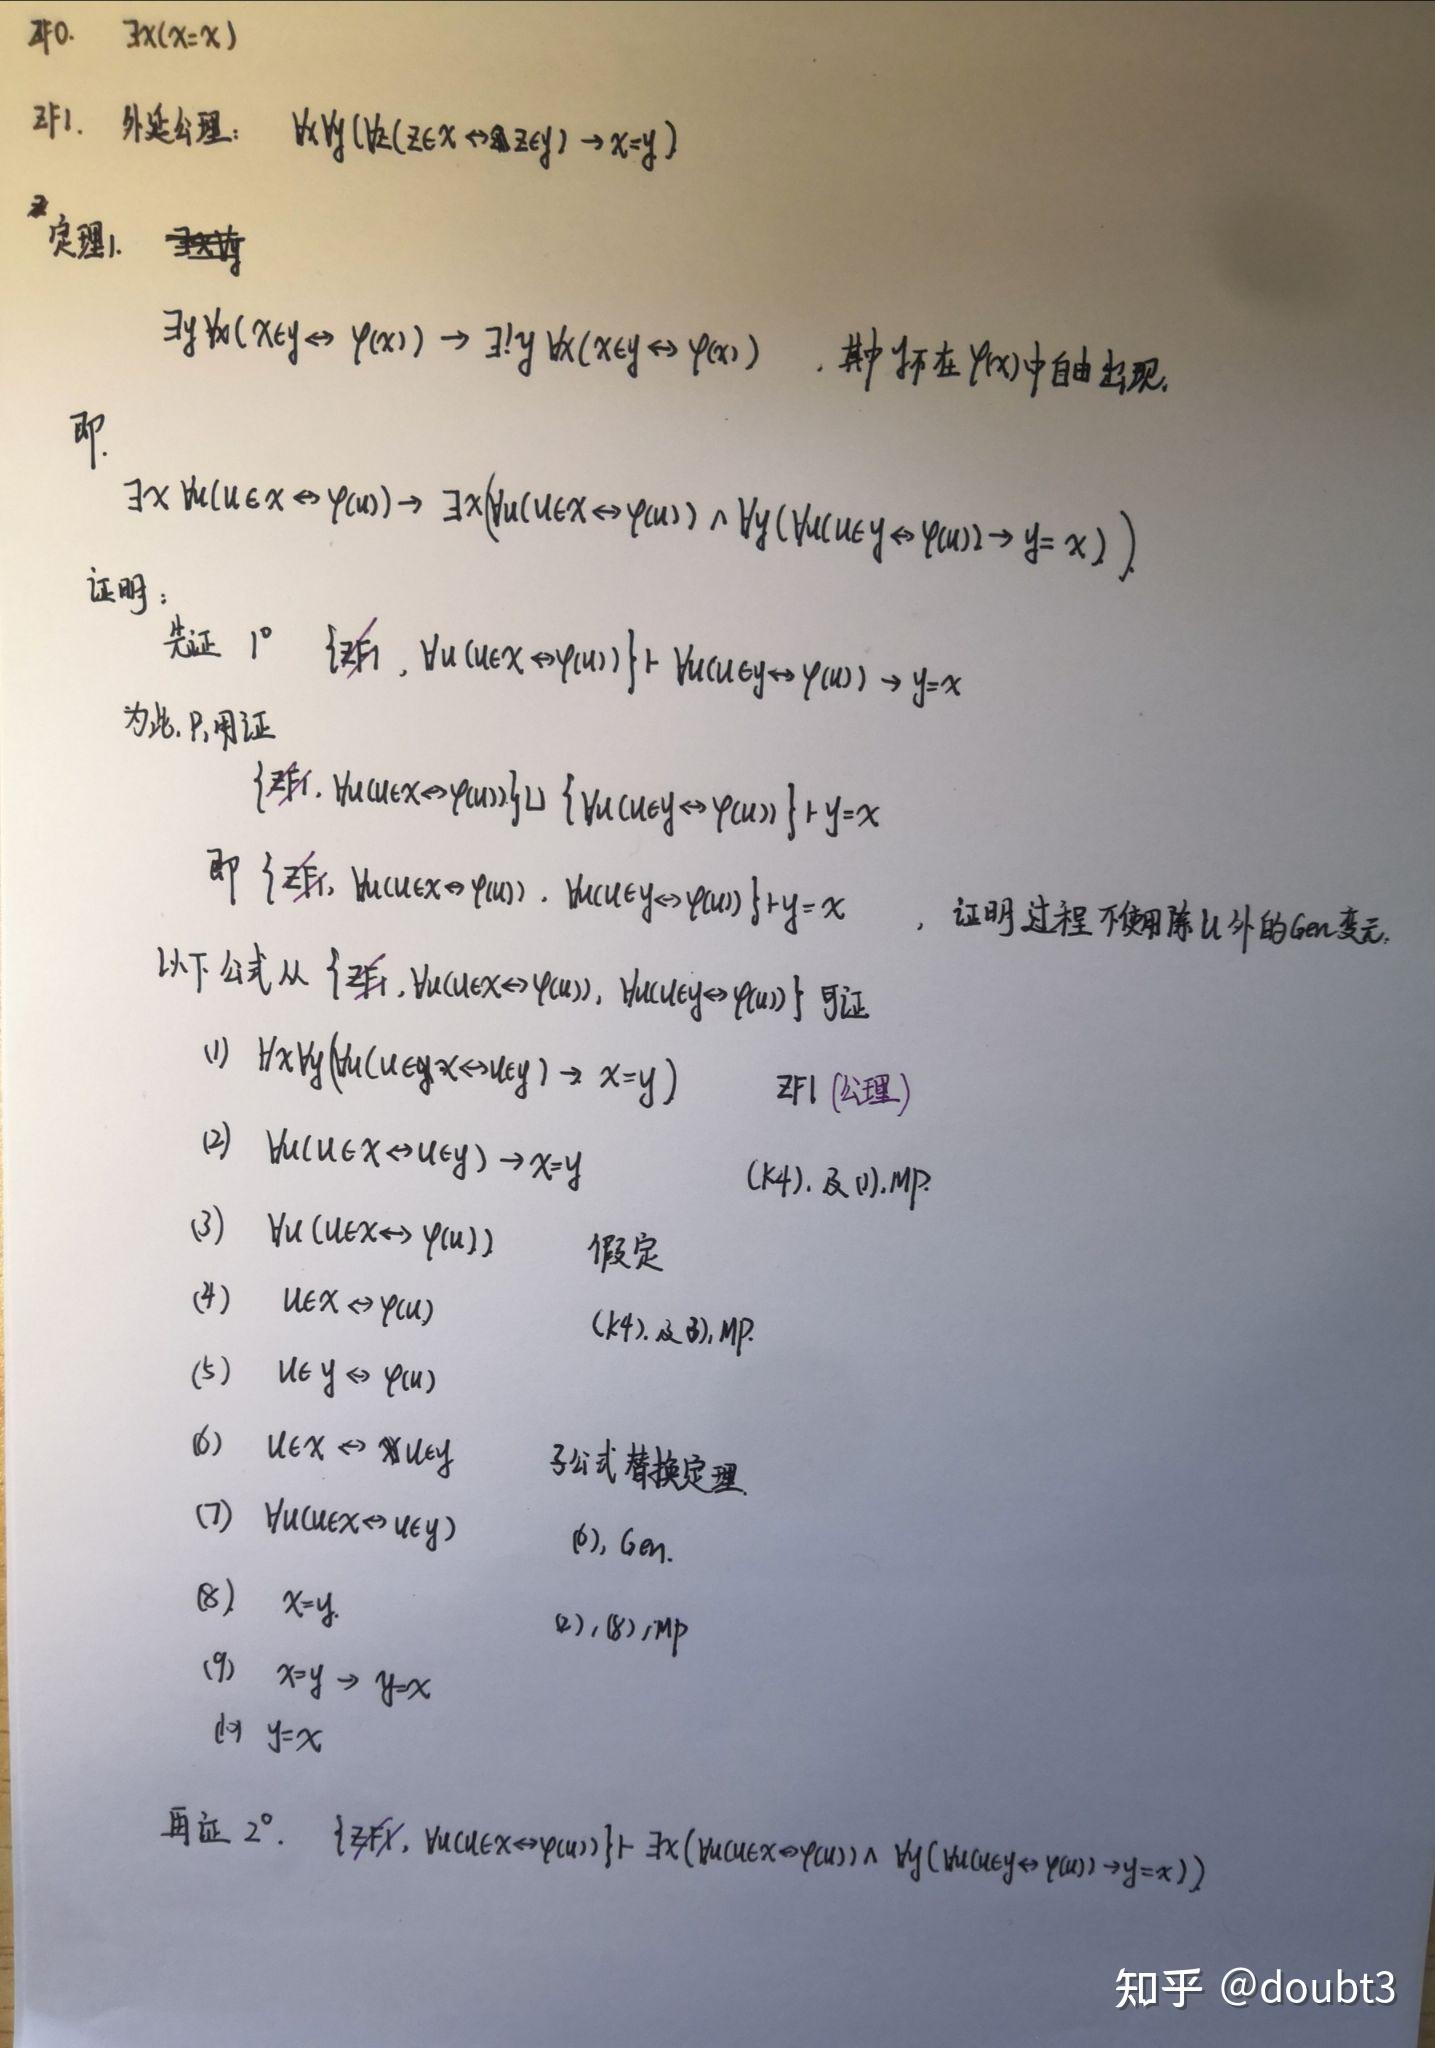 ZF0. ∃x(x=x)
ZF1. 外延公理: ∀x∀y(∀z(z∈x↔z∈y)→x=y)
定理1.
∃y∀x(x∈y↔φ(x))→∃!y∀x(x∈y↔φ(x)) , 其中y不在φ(x)中自由出现.
即.
∃x∀u(u∈x↔φ(u))→∃x(∀u(u∈x↔φ(u))∧∀y(∀u(u∈y↔φ(u))→y=x)).
证明:
先证 1° {ZF1, ∀u(u∈x↔φ(u))}⊢∀u(u∈y↔φ(u))→y=x
为此.只用证
{ZF1, ∀u(u∈x↔φ(u))}∪{∀u(u∈y↔φ(u))}⊢y=x
即 {ZF1, ∀u(u∈x↔φ(u)), ∀u(u∈y↔φ(u))}⊢y=x , 证明过程不使用除u外的Gen变元.
以下公式从 {ZF1, ∀u(u∈x↔φ(u)), ∀u(u∈y↔φ(u))} 可证
(1) ∀x∀y(∀u(u∈x↔u∈y)→x=y) ZF1 (公理)
(2) ∀u(u∈x↔u∈y)→x=y (K4). 及(1), MP.
(3) ∀u(u∈x↔φ(u)) 假定
(4) u∈x↔φ(u) (K4). 及(3), MP.
(5) u∈y↔φ(u)
(6) u∈x↔u∈y 子公式替换定理.
(7) ∀u(u∈x↔u∈y) (6), Gen.
(8) x=y. (2), (8), MP
(9) x=y→y=x
(10) y=x
再证 2°. {ZF1, ∀u(u∈x↔φ(u))}⊢∃x(∀u(u∈x↔φ(u))∧∀y(∀u(u∈y↔φ(u))→y=x))
知乎 @doubt3